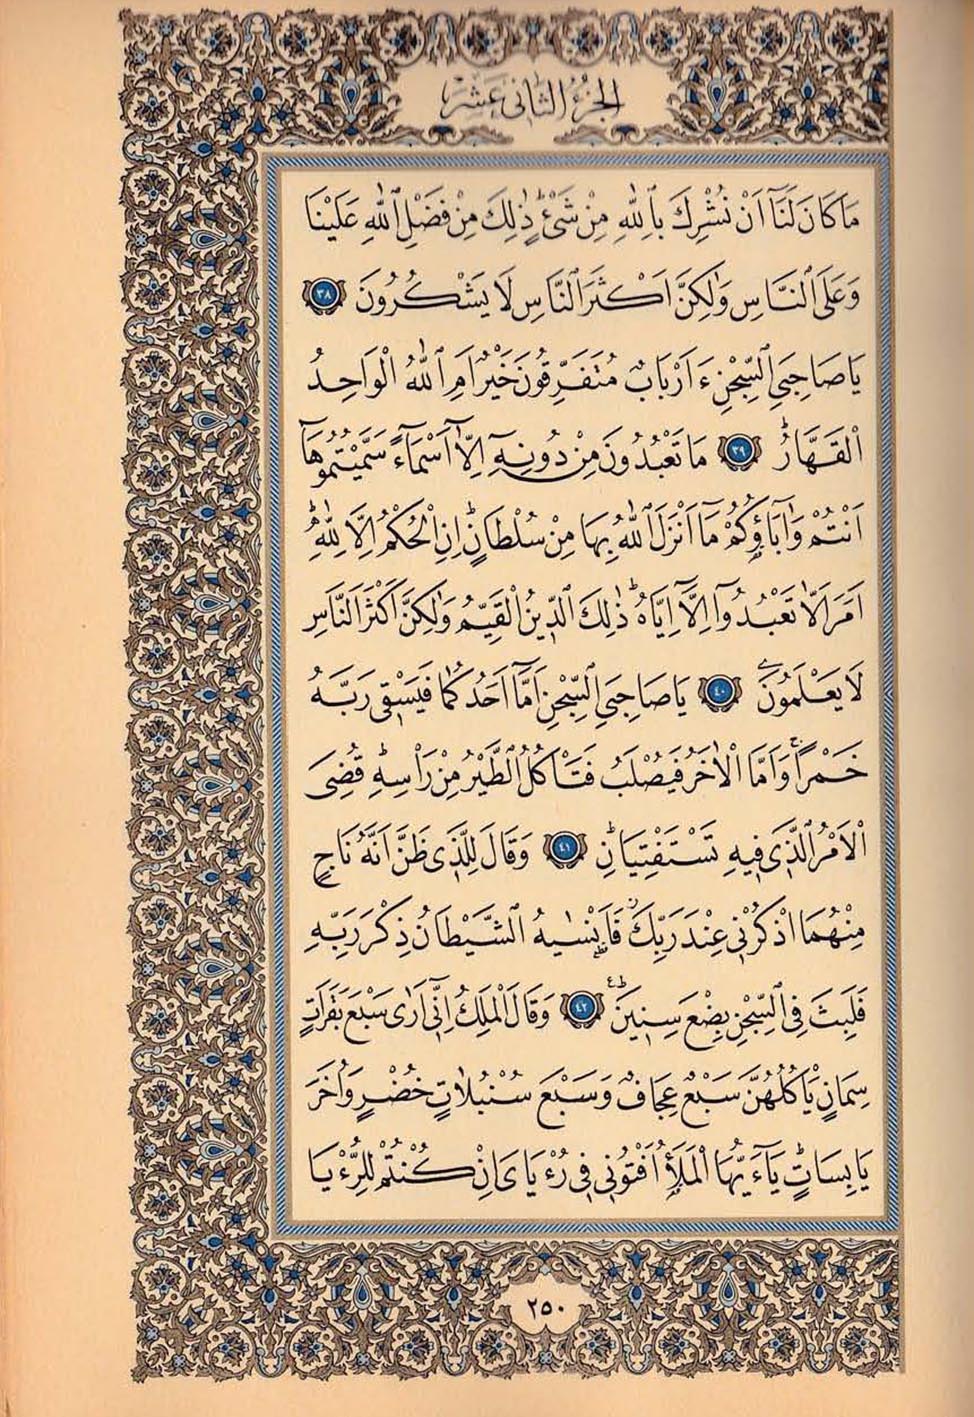 الجزء الثاني عشر
مَا كَانَ لَنَٓا اَنْ نُشْرِكَ بِاللّٰهِ مِنْ شَیْءٍۜ ذٰلِكَ مِنْ فَضْلِ اللّٰهِ عَلَيْنَا
وَعَلَى النَّاسِ وَلٰكِنَّ اَكْثَرَ النَّاسِ لَا يَشْكُرُونَ ٣٨
يَا صَاحِبَیِ السِّجْنِ ءَاَرْبَابٌ مُتَفَرِّقُونَ خَيْرٌ اَمِ اللّٰهُ الْوَاحِدُ
الْقَهَّارُۜ ٣٩ مَا تَعْبُدُونَ مِنْ دُونِهٖٓ اِلَّٓا اَسْمَٓاءً سَمَّيْتُمُوهَٓا
اَنْتُمْ وَاٰبَٓاؤُ۬كُمْ مَٓا اَنْزَلَ اللّٰهُ بِهَا مِنْ سُلْطَانٍۜ اِنِ الْحُكْمُ اِلَّا لِلّٰهِۜ
اَمَرَ اَلَّا تَعْبُدُٓوا اِلَّٓا اِيَّاهُۜ ذٰلِكَ الدّٖينُ الْقَيِّمُ وَلٰكِنَّ اَكْثَرَ النَّاسِ
لَا يَعْلَمُونَ ٤٠ يَا صَاحِبَیِ السِّجْنِ اَمَّٓا اَحَدُكُمَا فَيَسْقٖى رَبَّهُ
خَمْرًاۚ وَاَمَّا الْاٰخَرُ فَيُصْلَبُ فَتَاْكُلُ الطَّيْرُ مِنْ رَاْسِهٖۜ قُضِیَ
الْاَمْرُ الَّذٖى فٖيهِ تَسْتَفْتِيَانِۜ ٤١ وَقَالَ لِلَّذٖى ظَنَّ اَنَّهُ نَاجٍ
مِنْهُمَا اذْكُرْنٖى عِنْدَ رَبِّكَۘ فَاَنْسٰيهُ الشَّيْطَانُ ذِكْرَ رَبِّهٖ
فَلَبِثَ فِی السِّجْنِ بِضْعَ سِنٖينَۜ ٤٢ وَقَالَ الْمَلِكُ اِنّٖٓى اَرٰى سَبْعَ بَقَرَاتٍ
سِمَانٍ يَاْكُلُهُنَّ سَبْعٌ عِجَافٌ وَسَبْعَ سُنْبُلَاتٍ خُضْرٍ وَاُخَرَ
يَابِسَاتٍۜ يَٓا اَيُّهَا الْمَلَاُ اَفْتُونٖى فٖى رُءْيَاىَ اِنْ كُنْتُمْ لِلرُّءْيَا
٢٥٠